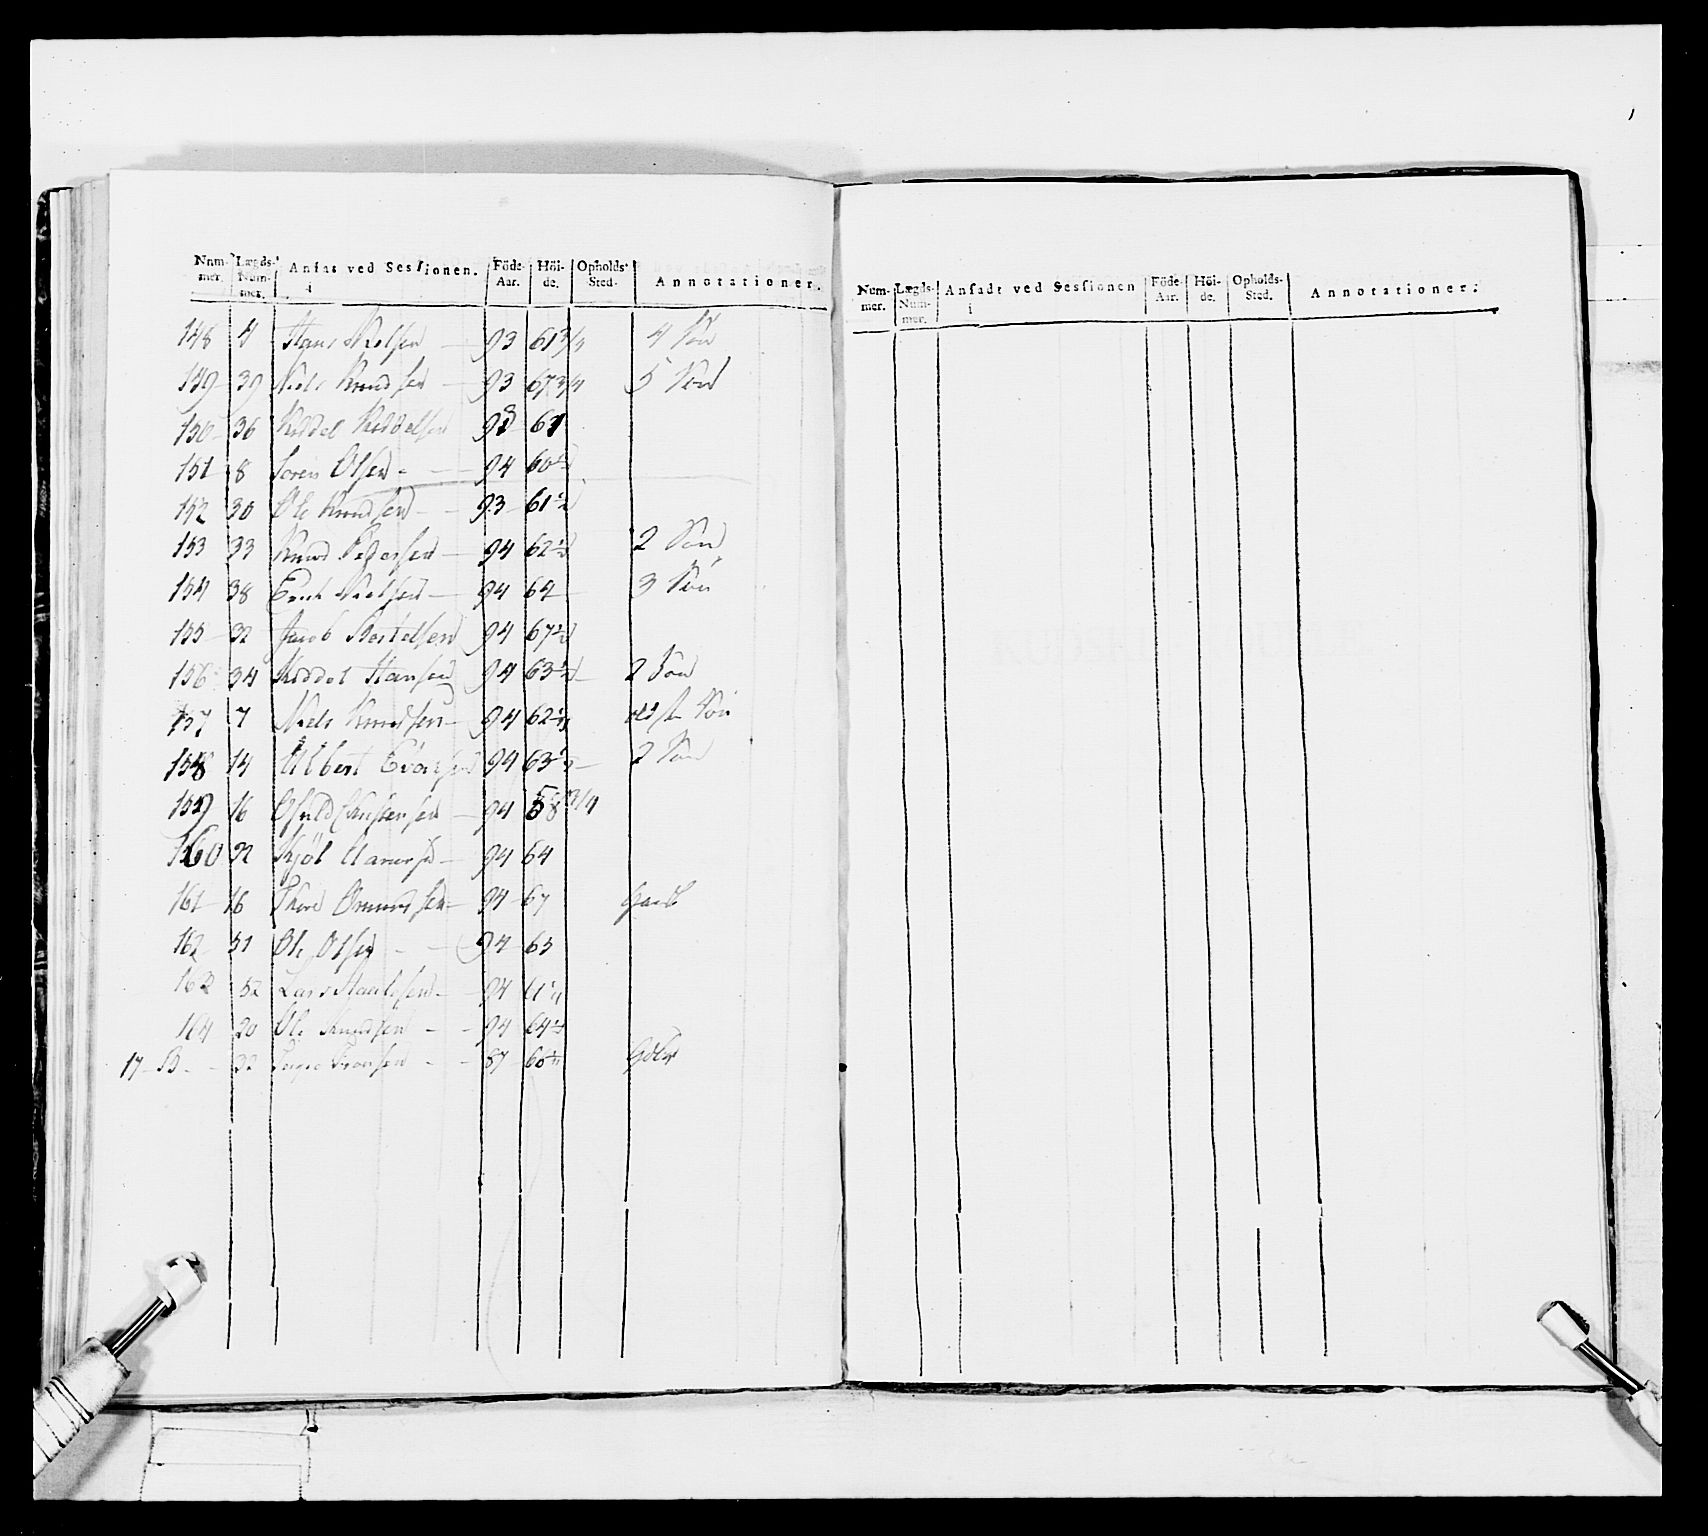 Num-mer. Lægds-Num-mer. Ansat ved Sessionen. i Föde-Aar. Höi-de. Opholds-Sted. Annotationer.
148 4 Hans Nielsen 93 61 3/4 4 Søn
149 39 Niels Knudsen 93 67 3/4 5 Søn
150 36 Keddel Keddelsen 93 61
151 8 Soren Olsen 94 60 1/2
152 30 Ole Knudsen 93 61 1/2
153 33 Knud Pedersen 94 62 1/2 2 Søn
154 38 Erich Nielsen 94 64 3 Søn
155 32 Jacob Bertelsen 94 67 1/2
156 34 Keddel Hansen 94 63 1/2 2 Søn
157 7 Niels Knudsen 94 62 1/4 Søn
158 14 Albert 94 63 2 Søn
159 16 Christensen 94 58 3/4
160 22 94 64
161 16 94 67
162 51 Ole Olsen 94 63
163 52 Lars 94 61 1/4
164 20 Ole Knudsen 94 64 1/2
17 32 87 60
Num-mer. Lægds-Num-mer. Ansadt ved Sessionen i Föde-Aar. Höi-de. Opholds-Sted. Annotationer.